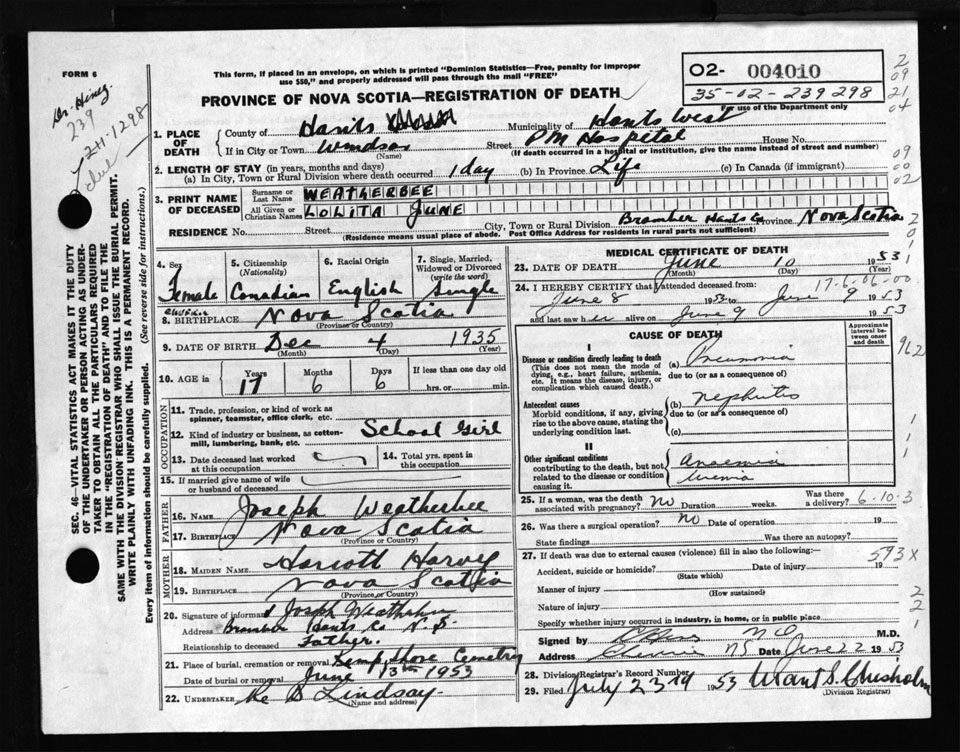 FORM 6
This form, if placed in an envelope, on which is printed "Dominion Statistics—Free, penalty for improper
use $50," and properly addressed will pass through the mail "FREE"
02- 004010
35-02-239 298
For use of the Department only
PROVINCE OF NOVA SCOTIA—REGISTRATION OF DEATH
Dr. Hines
239
2-11-1298
2
09
21
04
09
00
02
2
0
1
1. PLACE OF DEATH
County of Hants
Municipality of Hants West
If in City or Town Windsor
(Name)
Street P M Hospital House No.
(If death occurred in a hospital or institution, give the name instead of street and number)
2. LENGTH OF STAY (in years, months and days)
(a) In City, Town or Rural Division where death occurred 1 day (b) In Province Life (c) In Canada (if immigrant)
3. PRINT NAME OF DECEASED
Surname or Last Name WEATHERBEE
All Given or Christian Names LOLITA JUNE
RESIDENCE No. Street City, Town or Rural Division Bramber Hants Co Province Nova Scotia
(Residence means usual place of abode. Post Office Address for residents in rural parts not sufficient)
4. Sex Female
5. Citizenship (Nationality) Canadian
6. Racial Origin English
7. Single, Married, Widowed or Divorced (write the word) Single
8. BIRTHPLACE Nova Scotia
(Province or Country)
9. DATE OF BIRTH Dec 4 1935
(Month) (Day) (Year)
10. AGE in Years 17 Months 6 Days 6 If less than one day old hrs. or min.
OCCUPATION
11. Trade, profession, or kind of work as spinner, teamster, office clerk, etc.
12. Kind of industry or business, as cotton-mill, lumbering, bank, etc.
School Girl
13. Date deceased last worked at this occupation
14. Total yrs. spent in this occupation
15. If married give name of wife or husband of deceased
FATHER
16. NAME Joseph Weatherbee
17. BIRTHPLACE Nova Scotia
(Province or Country)
MOTHER
18. MAIDEN NAME Hariott Harvey
19. BIRTHPLACE Nova Scotia
(Province or Country)
20. Signature of informant Joseph Weatherbee
Address Bramber Hants Co N.S.
Relationship to deceased Father.
21. Place of burial, cremation or removal Kemp Shore Cemetery
Date of burial or removal June 13th 1953
22. UNDERTAKER B Lindsay
(Name and address)
MEDICAL CERTIFICATE OF DEATH
23. DATE OF DEATH June 10 1953
(Month) (Day) (Year)
17-6-06-00
24. I HEREBY CERTIFY that I attended deceased from
June 8 1953 to June 9 1953
and last saw her alive on June 9 1953
CAUSE OF DEATH
Approximate interval between onset and death
I
Disease or condition directly leading to death
(This does not mean the mode of dying, e.g., heart failure, asthenia, etc. It means the disease, injury, or complication which caused death.)
(a) Pneumonia
due to (or as a consequence of)
962
Antecedent causes
Morbid conditions, if any, giving rise to the above cause, stating the underlying condition last.
(b) Nephritis
due to (or as a consequence of)
(c)
II
Other significant conditions
contributing to the death, but not related to the disease or condition causing it.
Anaemia
Uremia
1
1
1
25. If a woman, was the death associated with pregnancy? No Duration weeks. Was there a delivery? 6-10-3
26. Was there a surgical operation? No Date of operation 19
State findings Was there an autopsy?
27. If death was due to external causes (violence) fill in also the following:—
593X
Accident, suicide or homicide? Date of injury 19
(State which)
Manner of injury
(How sustained)
Nature of injury
Specify whether injury occurred in industry, in home, or in public place
2
2
1
Signed by M.D.
Address NS Date June 22 1953
28. Division Registrar's Record Number
29. Filed July 23 1953 Grant S. Chisholm
(Division Registrar)
SEC. 46—VITAL STATISTICS ACT MAKES IT THE DUTY
OF THE UNDERTAKER OR PERSON ACTING AS UNDER-
TAKER TO OBTAIN ALL THE PARTICULARS REQUIRED
IN THE "REGISTRATION OF DEATH" AND TO FILE THE
SAME WITH THE DIVISION REGISTRAR WHO SHALL ISSUE THE BURIAL PERMIT.
WRITE PLAINLY WITH UNFADING INK. THIS IS A PERMANENT RECORD.
Every item of information should be carefully supplied. (See reverse side for instructions.)